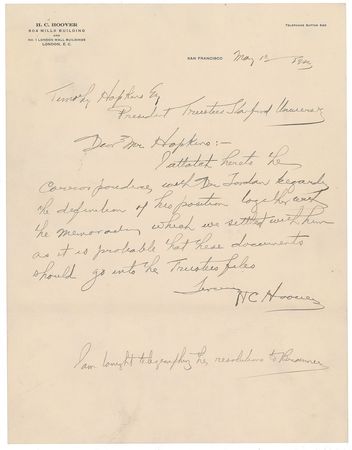 H. C. HOOVER
804 MILLS BUILDING
AND
NO. 1 LONDON WALL BUILDINGS
LONDON, E. C.
TELEPHONE SUTTER 542
SAN FRANCISCO May 13
Timothy Hopkins Esq
President Trustees Stanford University
Dear Mr Hopkins:—
I attatch hereto the
correspondence with Dr Jordan regards
the definition of his position together with
the memoranda which we settled with him
as it is probable that these documents
should go into the Trustees files
H C Hoover
I am tonight telegraphing the resolutions to